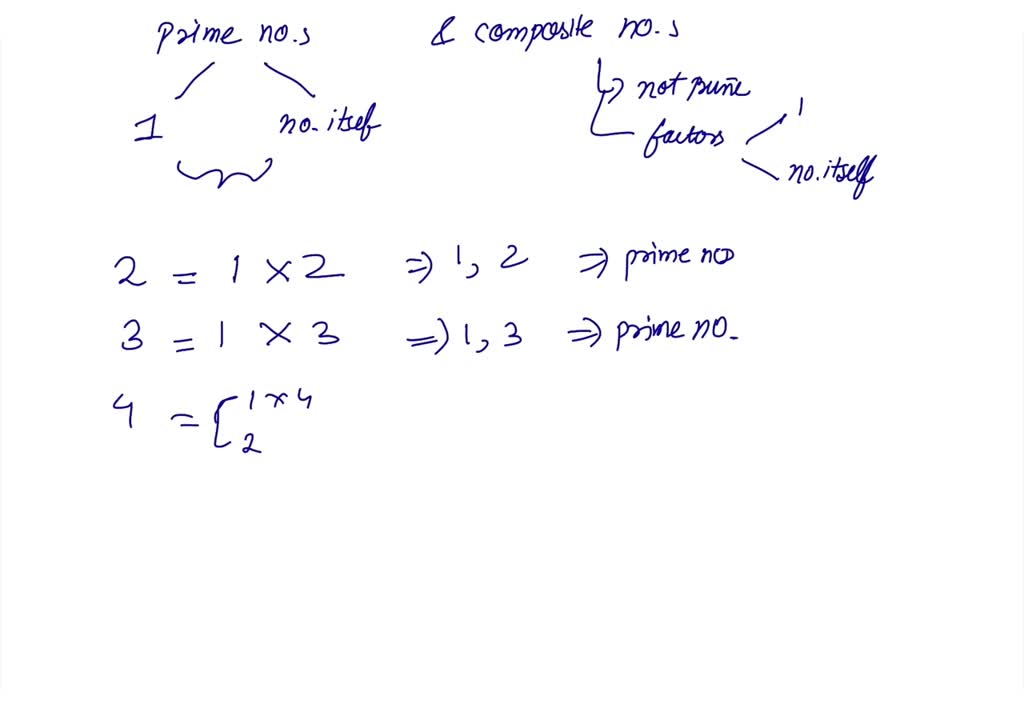 prime no.s & composite no.s
not prime
1 no. itsef factors 1
no. itself
2 = 1 × 2 ⇒ 1, 2 ⇒ prime no
3 = 1 × 3 ⇒ 1, 3 ⇒ prime no.
4 = [ 1 × 4
2